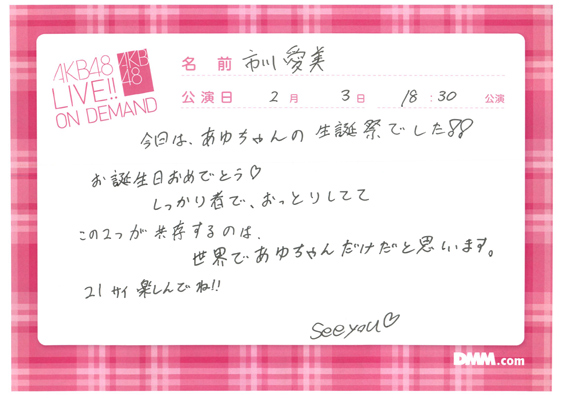 AKB48
LIVE!!
ON DEMAND
AKB
48
名 前 市川愛美
公演日 2月 3日 18:30 公演
今日は、あゆちゃんの生誕祭でした!!
お誕生日おめでとう♡
しっかり者で、おっとりしてて
この2つが共存するのは、
世界であゆちゃんだけだと思います。
21サイ楽しんでね!!
see you♡
DMM.com